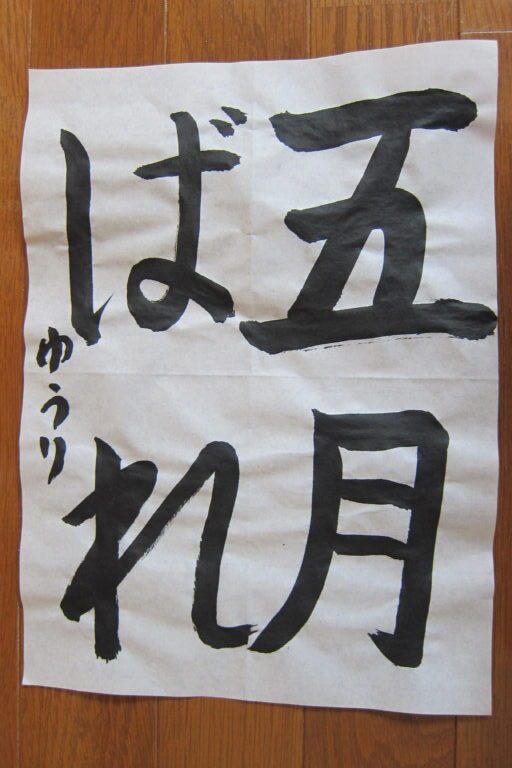 五月
ばれ
ゆうり